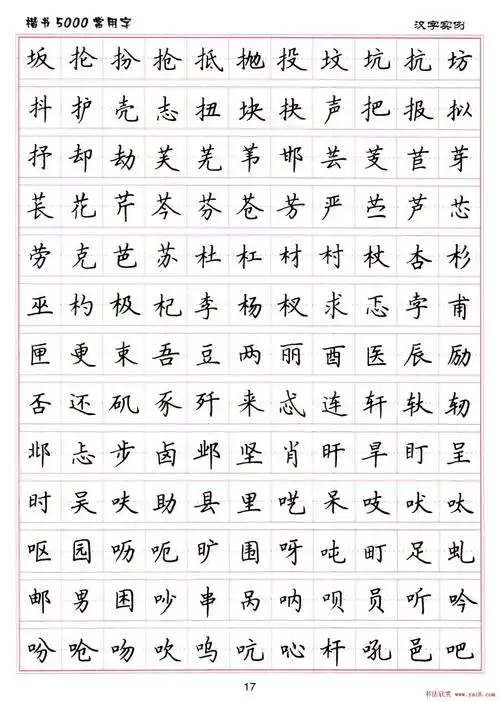 楷书5000常用字 汉字实例
坂 抡 扮 抢 抵 抛 投 坟 坑 抗 坊
抖 护 壳 志 扭 块 抉 声 把 报 拟
抒 却 劫 芙 芜 苇 邯 芸 芰 苣 芽
苌 花 芹 芩 芬 苍 芳 严 苎 芦 芯
劳 克 芭 苏 杜 杠 材 村 杖 杏 杉
巫 杓 极 杞 李 杨 杈 求 忑 孛 甫
匣 更 束 吾 豆 两 丽 酉 医 辰 励
否 还 矶 豕 歼 来 忒 连 轩 轪 轫
邶 忐 步 卤 邺 坚 肖 旰 旱 盯 呈
时 吴 呋 助 县 里 呓 呆 吱 吠 呔
呕 园 呖 呃 旷 围 呀 吨 町 足 虬
邮 男 困 吵 串 呙 呐 呗 员 听 吟
吩 呛 吻 吹 呜 吭 吣 杆 吼 邑 吧
17
书法欣赏 www.yac8.com